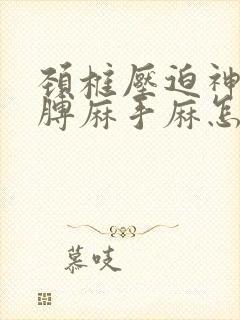 頚椎壓迫神
脾麻手麻怎
慕吱